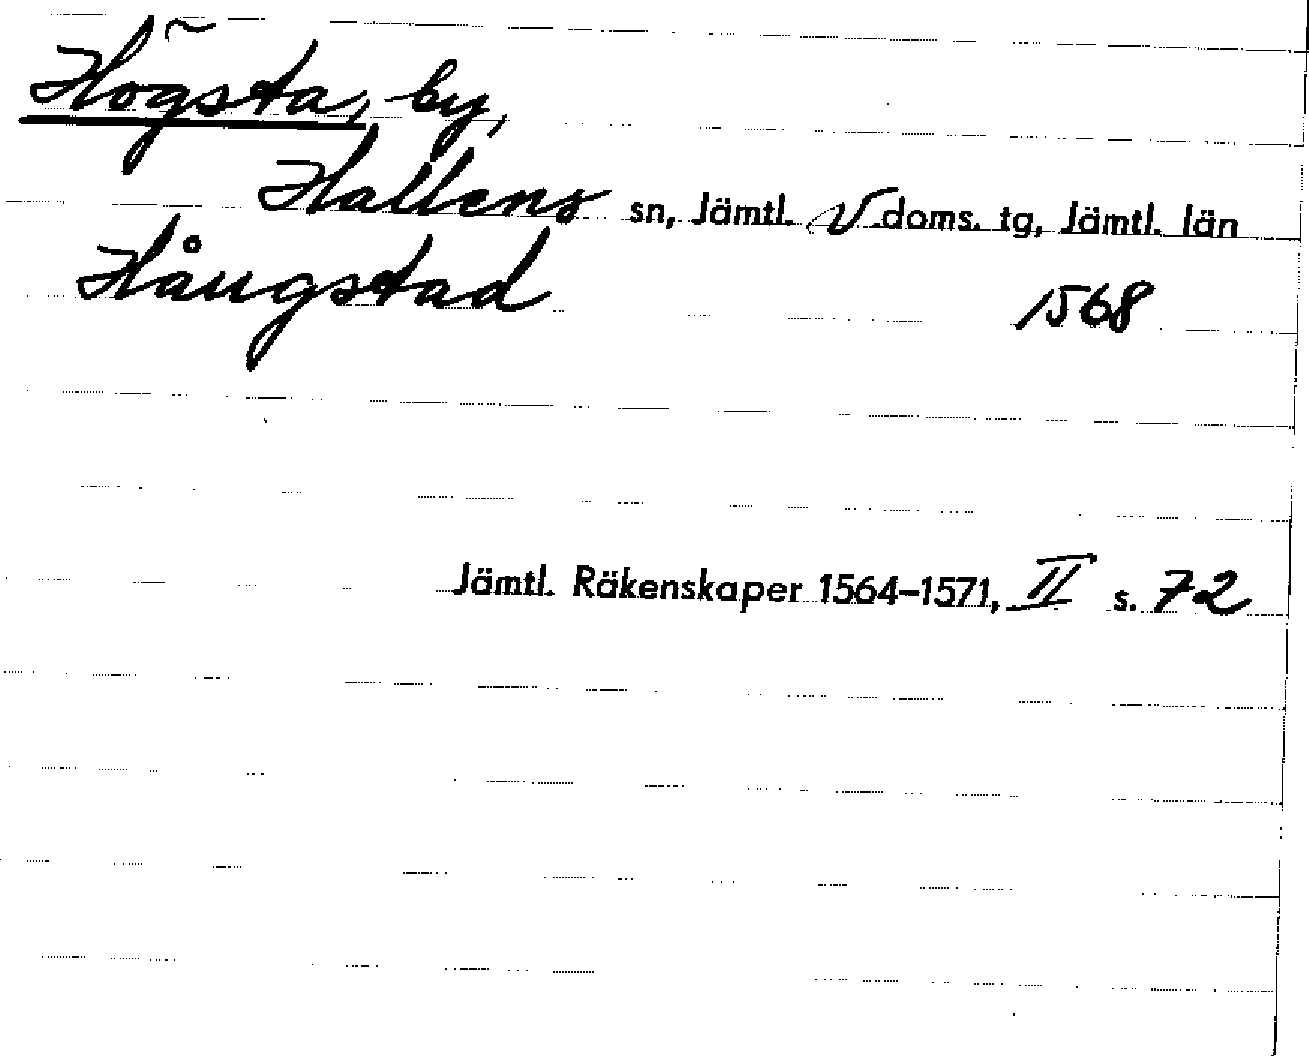 Högsta, by,
Hallens sn, Jämtl. V doms. tg, Jämtl. län
Håugstad 1568
Jämtl. Räkenskaper 1564–1571, II s. 72